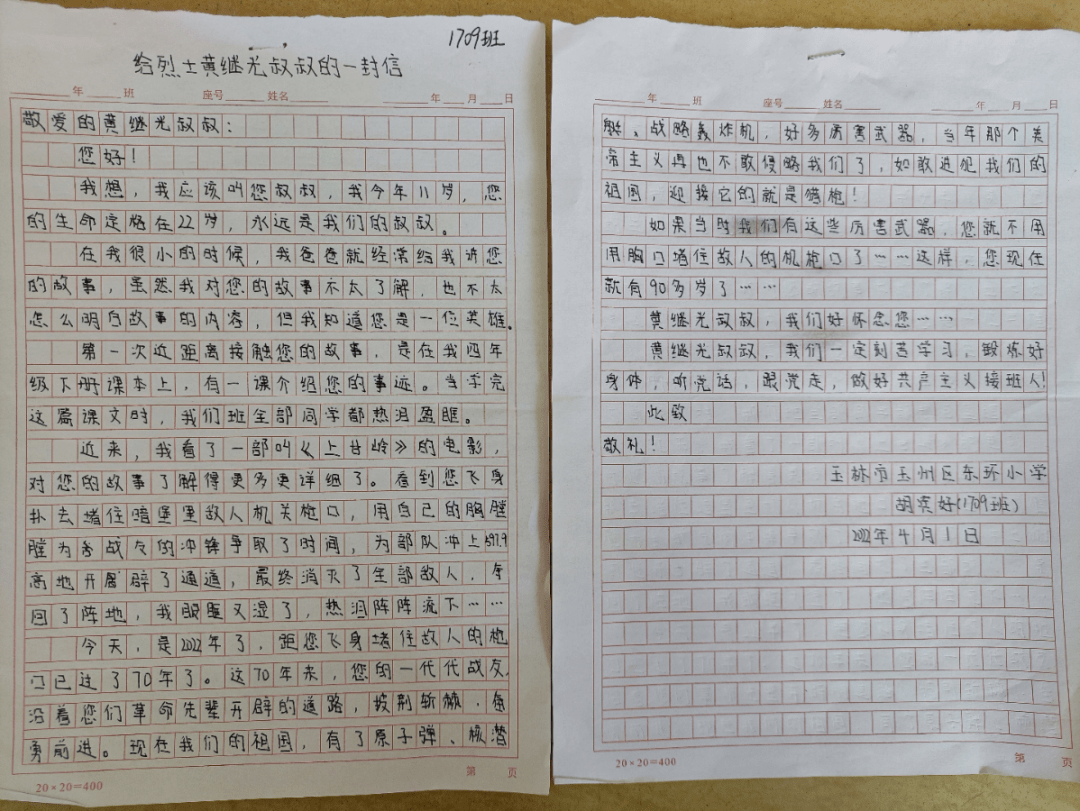 1709班
给烈士黄继光叔叔的一封信
年 班 座号 姓名 年 月 日
敬爱的黄继光叔叔：
您好！
我想，我应该叫您叔叔，我今年11岁，您
的生命定格在22岁，永远是我们的叔叔。
在我很小的时候，我爸爸就经常给我讲您
的故事，虽然我对您的故事不太了解，也不太
怎么明白故事的内容，但我知道您是一位英雄。
第一次近距离接触您的故事，是在我四年
级下册课本上，有一课介绍您的事迹。当学完
这篇课文时，我们班全部同学都热泪盈眶。
近来，我看了一部叫《上甘岭》的电影，
对您的故事了解得更多更详细了。看到您飞身
扑去堵住暗堡里敌人机关枪口，用自己的胸膛
膛为各战友的冲锋争取了时间，为部队冲上597.9
高地开辟了通道，最终消灭了全部敌人，夺
回了阵地，我眼眶又湿了，热泪阵阵流下……
今天，是2022年了，距您飞身堵住敌人的枪
口已过了70年了。这70年来，您的一代代战友，
沿着您们革命先辈开辟的道路，披荆斩棘，奋
勇前进。现在我们的祖国，有了原子弹、核潜
20×20=400
第 页
年 班 座号 姓名 年 月 日
艇、战略轰炸机，好多厉害武器，当年那个美
帝主义再也不敢侵略我们了，如敢进犯我们的
祖国，迎接它的就是猎枪！
如果当时我们有这些厉害武器，您就不用
用胸口堵住敌人的机枪口了……这样，您现在
就有90多岁了……
黄继光叔叔，我们好怀念您……
黄继光叔叔，我们一定刻苦学习，锻炼好
身体，听党话，跟党走，做好共产主义接班人！
此致
敬礼！
玉林市玉州区东环小学
胡 好（1709班）
2022年4月1日
20×20=400
第 页